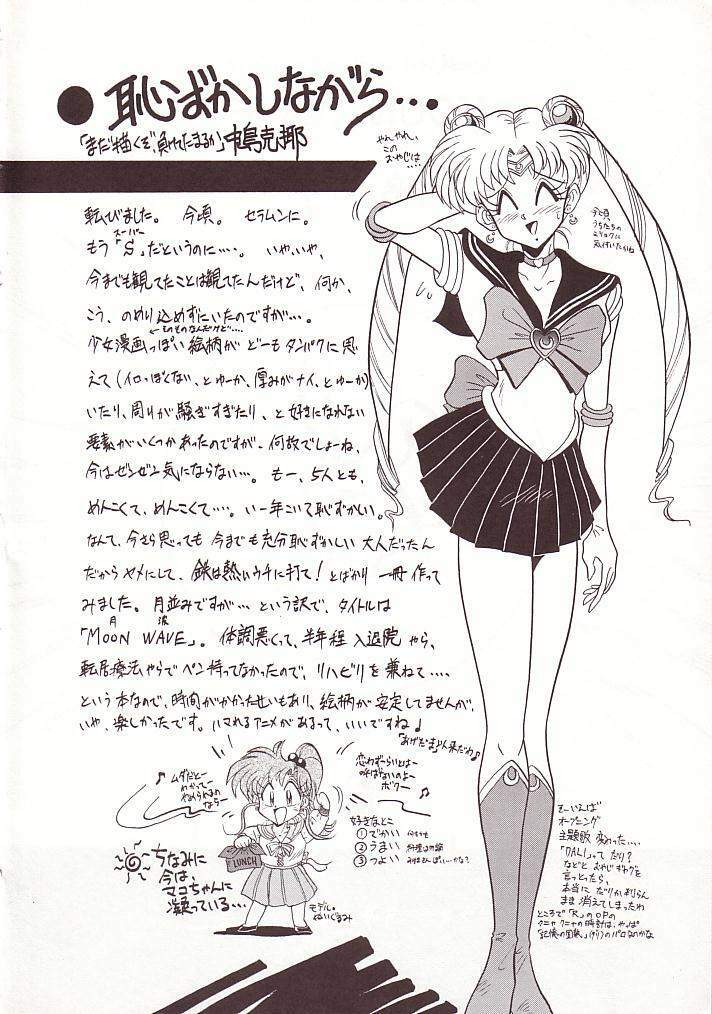 ●恥ずかしながら…
「まだ描くぞ、負けてたまるか」中島克耶
やれやれ、
この
おやじは…
今頃
うちたちの
ミリョクに
気付いたかね
転びました。今頃。セラムンに。
スーパー
もう「S」だというのに…。いやいや、
今までも観てたことは観てたんだけど、何か、
こう、のめり込めずにいたのですが…。
←ものものなんだけど…
少女漫画っぽい絵柄がどーもタンパクに思
えて(イロっぽくない、とゆーか、厚みがナイ、とゆーか)
いたり、周りが騒ぎすぎたり、と好きになれない
要素がいくつかあったのですが、何故でしょーね、
今はゼンゼン気にならない…。もー、5人とも、
めんこくて、めんこくて…。いー年こいて恥ずかしい。
なんて、今さら思っても今までも充分恥ずかしい大人だったん
だからヤメにして、鉄は熱いウチに打て!とばかり一冊作って
みました。月並みですが…という訳で、タイトルは
月 波
「MOON WAVE」。体調悪くって、半年程入退院やら、
転居療法やらでペン持ってなかったので、リハビリを兼ねて…
という本なので、時間がかかったせいもあり、絵柄が安定してませんが、
いや、楽しかったです。ハマれるアニメがあるって、いいですね♪
「あげだま」くん来だわ♪
♪ムダだとー
わかってー
やめられるの
ならー
恋わずーらいとはー
呼ばないのよー
ボクー♪
LUNCH
好きなとこ
①でかい 何もかも
②うまい 料理は勿論
③つよい
ちなみに
今は、
マコちゃんに
凝っている…
モデル。
ぬいぐるみ
そーいえば
オープニング
主題歌 変わった…
「DALI」って だり?
などと おやじギャグを
言っとったら、
本当に だりか判らん
まま 消えてしまったわ
ところで「R」のOPの
クニャクニャの時計は、やっぱ
「記憶の固執」(ダリ)のパロなのかな